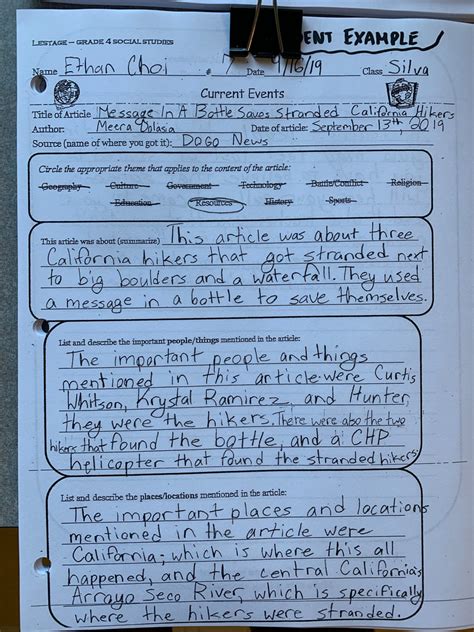 ENT EXAMPLE
LESTAGE – GRADE 4 SOCIAL STUDIES
Name Ethan Choi 7 Date 9/16/19 Class Silva
Current Events
Title of Article: Message In A Bottle Saves Stranded California Hikers
Author: Meera Dolasia Date of article: September 13th, 2019
Source (name of where you got it): DOGO News
Circle the appropriate theme that applies to the content of the article:
Geography Culture Government Technology Battle/Conflict Religion
Education Resources History Sports
This article was about (summarize) This article was about three
California hikers that got stranded next
to big boulders and a waterfall. They used
a message in a bottle to save themselves.
List and describe the important people/things mentioned in the article:
The important people and things
mentioned in this article were Curtis
Whitson, Krystal Ramirez, and Hunter,
they were the hikers. There were also the two
hikers that found the bottle, and a CHP
helicopter that found the stranded hikers
List and describe the places/locations mentioned in the article:
The important places and locations
mentioned in the article were
California; which is where this all
happened, and the central California's
Arroyo Seco River, which is specifically
where the hikers were stranded.